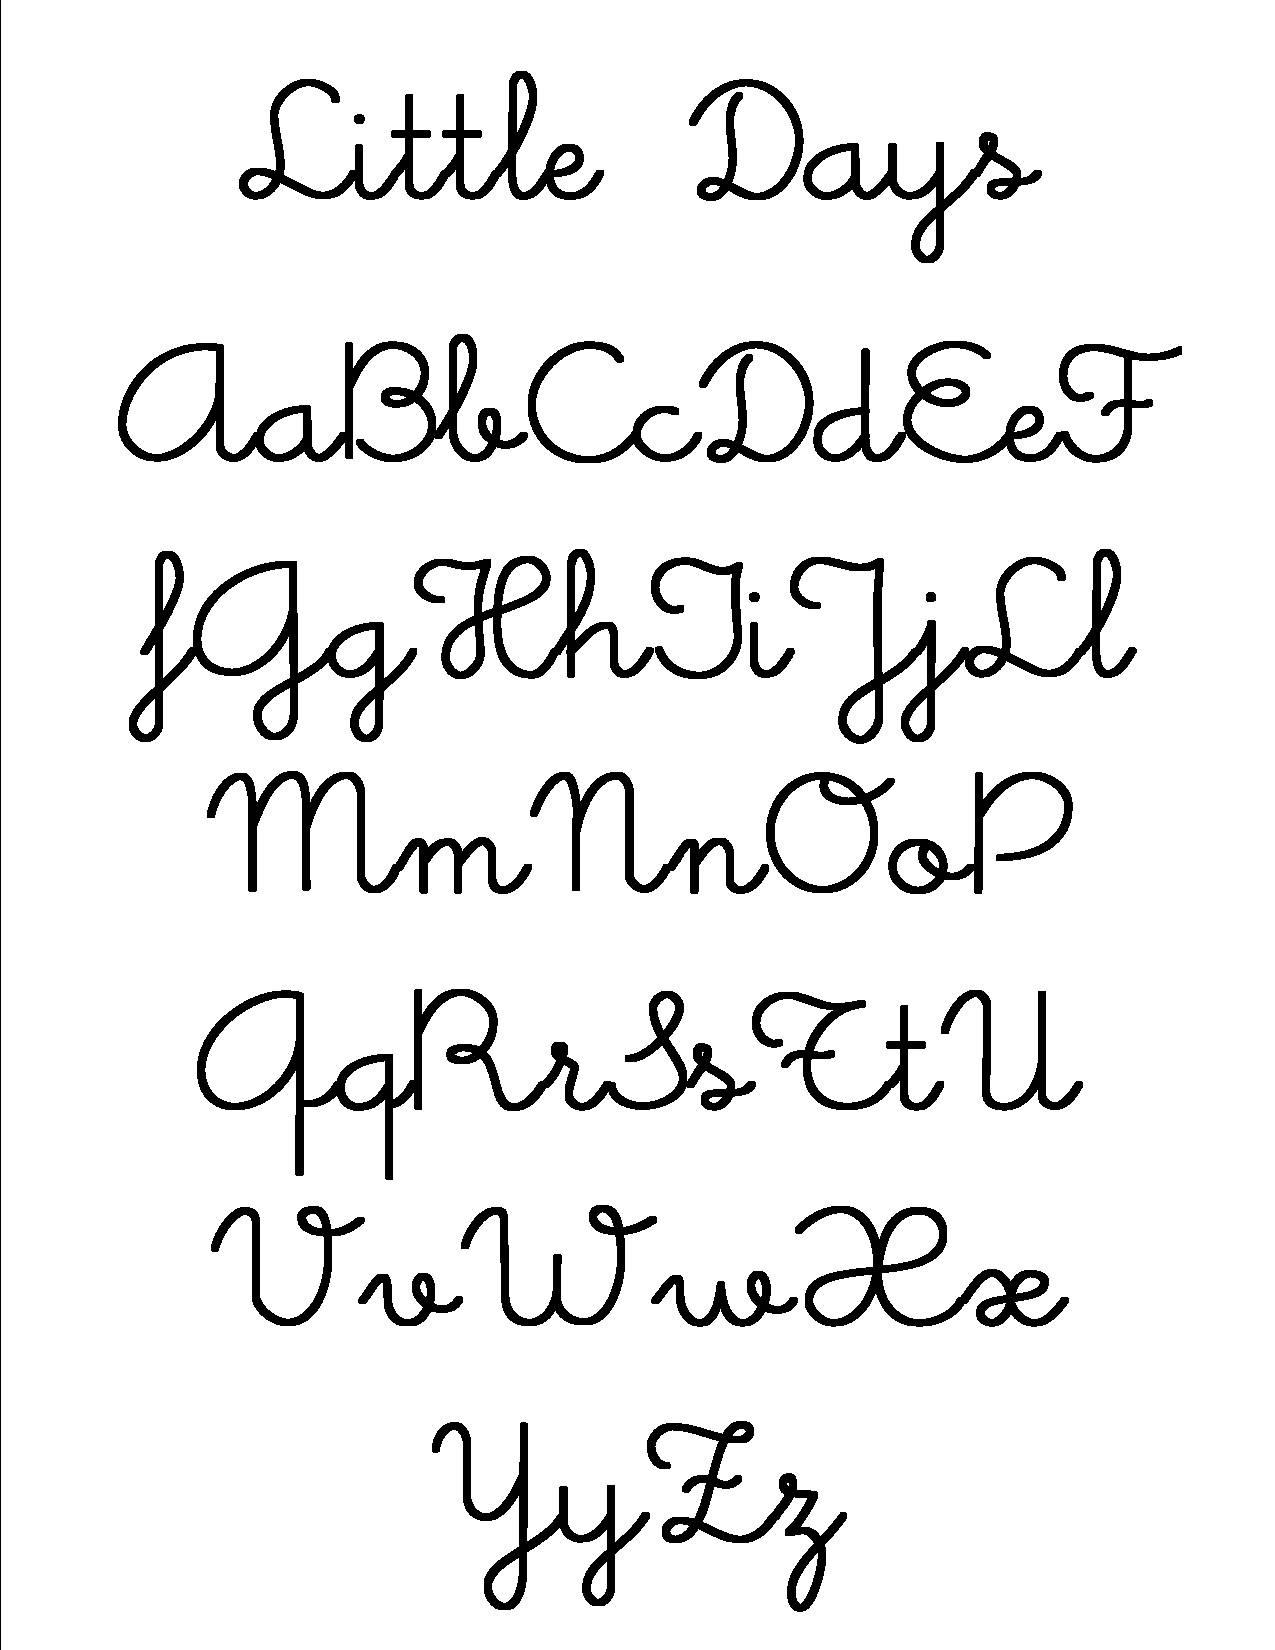 Little Days
AaBbCcDdEeF
fGgHhIiJjLl
MmNnOoP
QqRrSsTtU
VvWwXx
YyZz